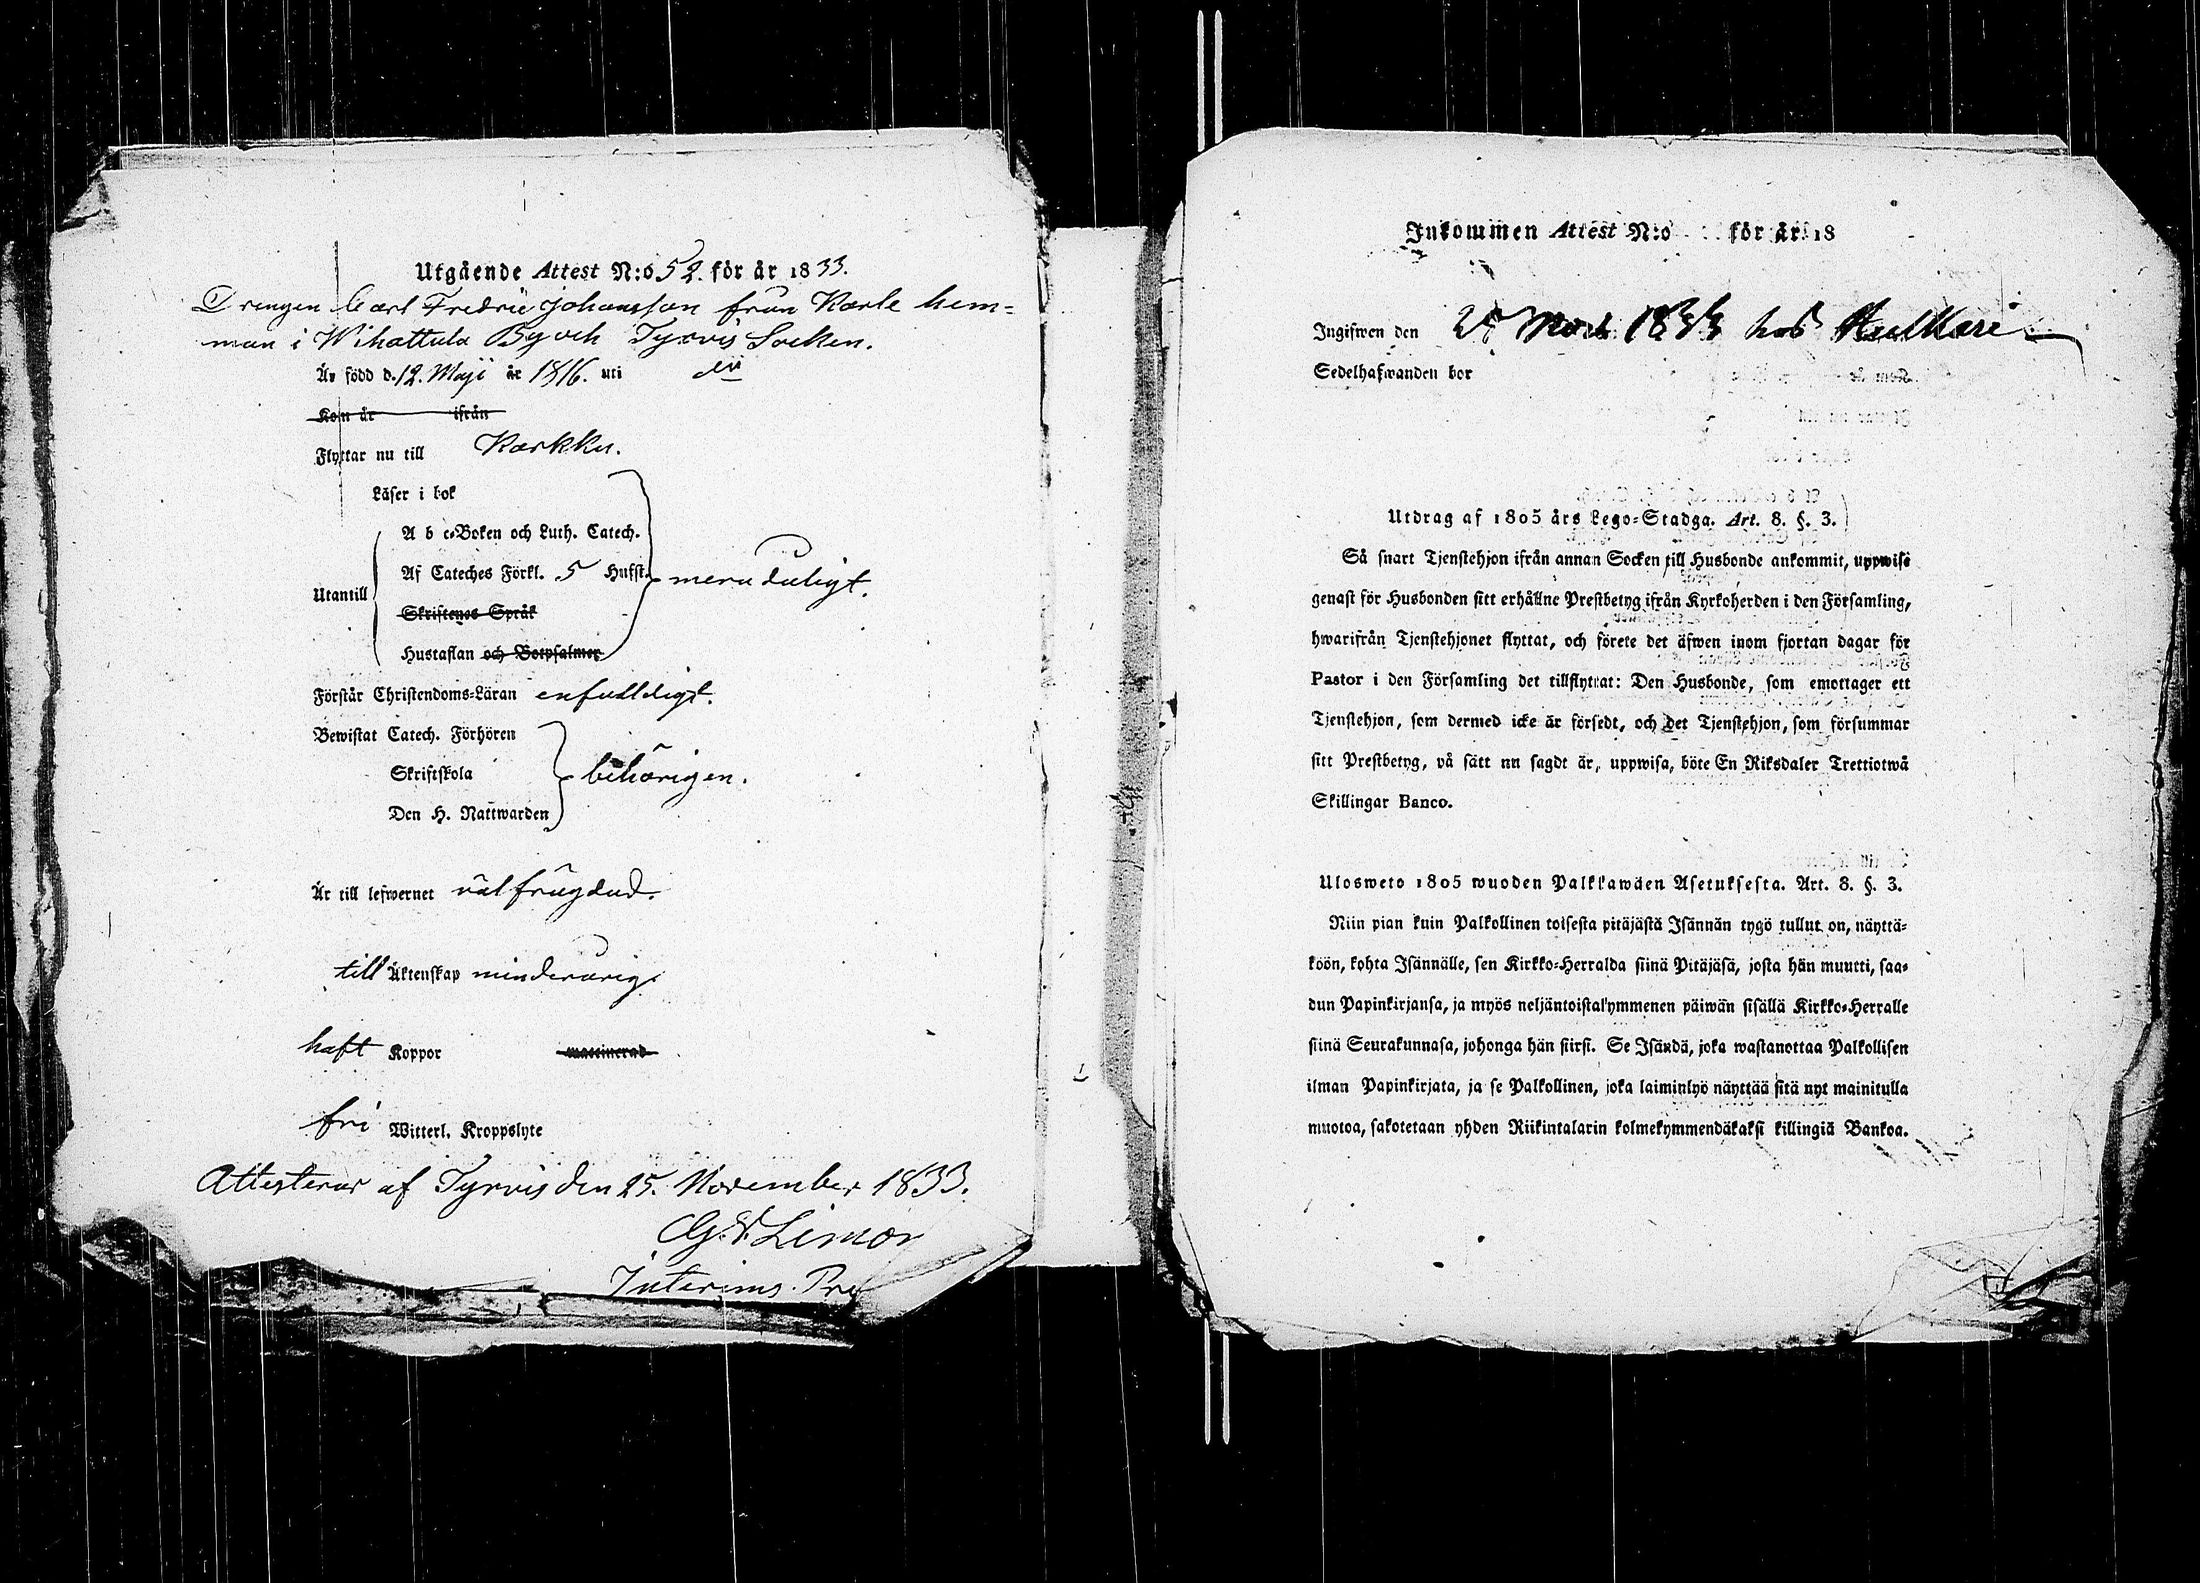 Utgående Attest N:o 52. för år 1833.
Drengen Carl Fredric Johansson från Karle hem-
man i Wihattula By och Tyrvis Socken.
Är född d. 12. Maji år 1816. uti d:o
Kom år ifrån
Flyttar nu till Karkku.
Läser i bok
A b c-Boken och Luth. Catech.
Af Cateches Förkl. 5 Hufst.
Utantill
Skriftenes Språk
Hustaflan och Botpsalmer
meradeligt.
Förstår Christendoms-Läran enfalldigt.
Bewistat Catech. Förhören
Skriftskola
Den H. Nattwarden
behörigen.
Är till lefwernet väl frägdad.
till Äktenskap minderårig.
haft Koppor vaccinerad
fri Witterl. Kroppslyte
Attesterar af Tyrvis den 25. November 1833.
Limon
Interims. Pre
Inkommen Attest N:o för år 18
Ingifwen den 1833 hos
Sedelhafwanden bor
Utdrag af 1805 års Lego-Stadga. Art. 8. §. 3.
Så snart Tjenstehjon ifrån annan Socken till Husbonde ankommit, uppwise
genast för Husbonden sitt erhållne Prestbetyg ifrån Kyrkoherden i den Församling,
hwarifrån Tjenstehjonet flyttat, och förete det äfwen inom fjortan dagar för
Pastor i den Församling det tillflyttat: Den Husbonde, som emottager ett
Tjenstehjon, som dermed icke är försedt, och det Tjenstehjon, som försummar
sitt Prestbetyg, på sätt nu sagdt är, uppwisa, böte En Riksdaler Trettiotwå
Skillingar Banco.
Ulosweto 1805 wuoden Palkkawäen Asetuksesta. Art. 8. §. 3.
Niin pian kuin Palkollinen toisesta pitäjästä Isännän tygö tullut on, näyttä-
köön, kohta Isännälle, sen Kirkko-Herralda siinä Pitäjäsä, josta hän muutti, saa-
dun Papinkirjansa, ja myös neljäntoistakymmenen päiwän sisällä Kirkko-Herralle
siinä Seurakunnasa, johonga hän siirsi. Se Isändä, joka wastanottaa Palkollisen
ilman Papinkirjata, ja se Palkollinen, joka laiminlyö näyttää sitä nyt mainitulla
muotoa, sakotetaan yhden Riikintalarin kolmekymmendäkaksi killingiä Bankoa.